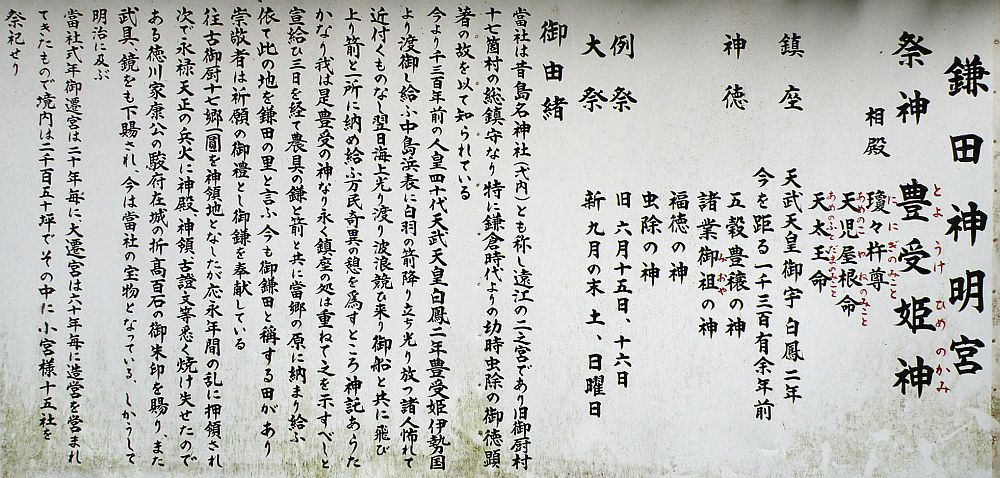 鎌田神明宮
祭神 豊受姫神
とようけひめのかみ
相殿 瓊々杵尊
ににぎのみこと
天児屋根命
あめのこやねのみこと
天太玉命
あめのふとたまのみこと
鎮座 天武天皇御宇 白鳳二年
今を距る一千三百有余年前
神徳 五穀豊穣の神
諸業御祖の神
みおや
福徳の神
虫除の神
例祭 旧 六月十五日、十六日
大祭 新 九月の末 土、日曜日
御由緒
當社は昔島名神社(弐内)とも称し遠江の二之宮であり旧御厨村
十七箇村の総鎮守なり 特に鎌倉時代よりの幼時虫除の御徳顕
著の故を以て知られている
今より千三百年前の人皇四十代天武天皇白鳳二年豊受姫伊勢国
より渡御し給ふ中島浜表に白羽の箭降り立ち光り放つ諸人怖れて
近付くものなし翌日海上光り渡り波浪競ひ来り御船と共に飛び
上り箭と一所に納め給ふ万民奇異の憩を為すところ神託あらた
かなり我は是豊受の神なり永く鎮座の処は重ねて之を示すべしと
宣給ひ三日を経て農具の鎌と箭と共に當郷の原に納まり給ふ
依て此の地を鎌田の里と言ふ今も御鎌田と稱する田があり
崇敬者は祈願の御禮とし御鎌を奉献している
往古御厨十七郷一圓を神領地となしたが応永年間の乱に押領され
次で永禄天正の兵火に神殿神領古證文等悉く焼け失せたので
ある徳川家康公の駿府在城の折高百石の御朱印を賜り、また
武具、鏡をも下賜され、今は當社の宝物となっている、しかうして
明治に及ぶ
當社式年御遷宮は二十年毎に、大遷宮は六十年毎に造営を営まれ
てきたもので境内は二千百五十坪でその中に小宮様十五社を
祭祀せり